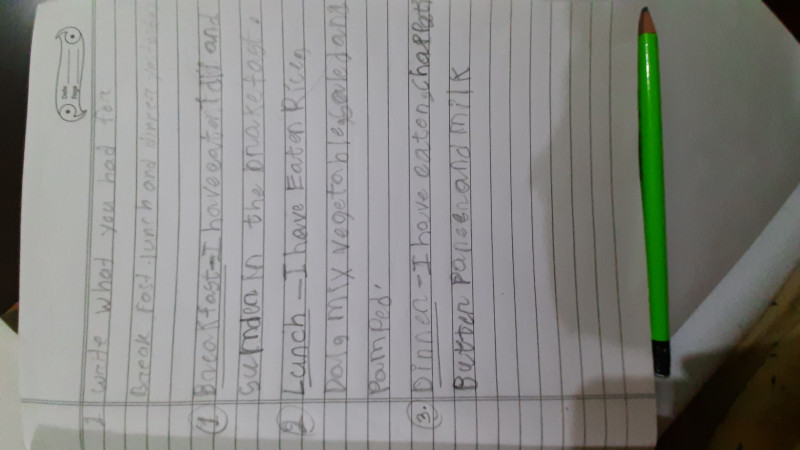 Date
Page
1 write what you had for
Break fast lunch and dinner
(1) Breakfast - I have eaten Idli and
Sumder in the brakefast.
(2) Lunch - I have Eaten Rice,
Dal, mix vegetable, Saled and
Pamped.
(3.) Dinner - I have eaten, chapati
Butter Paneer and milk